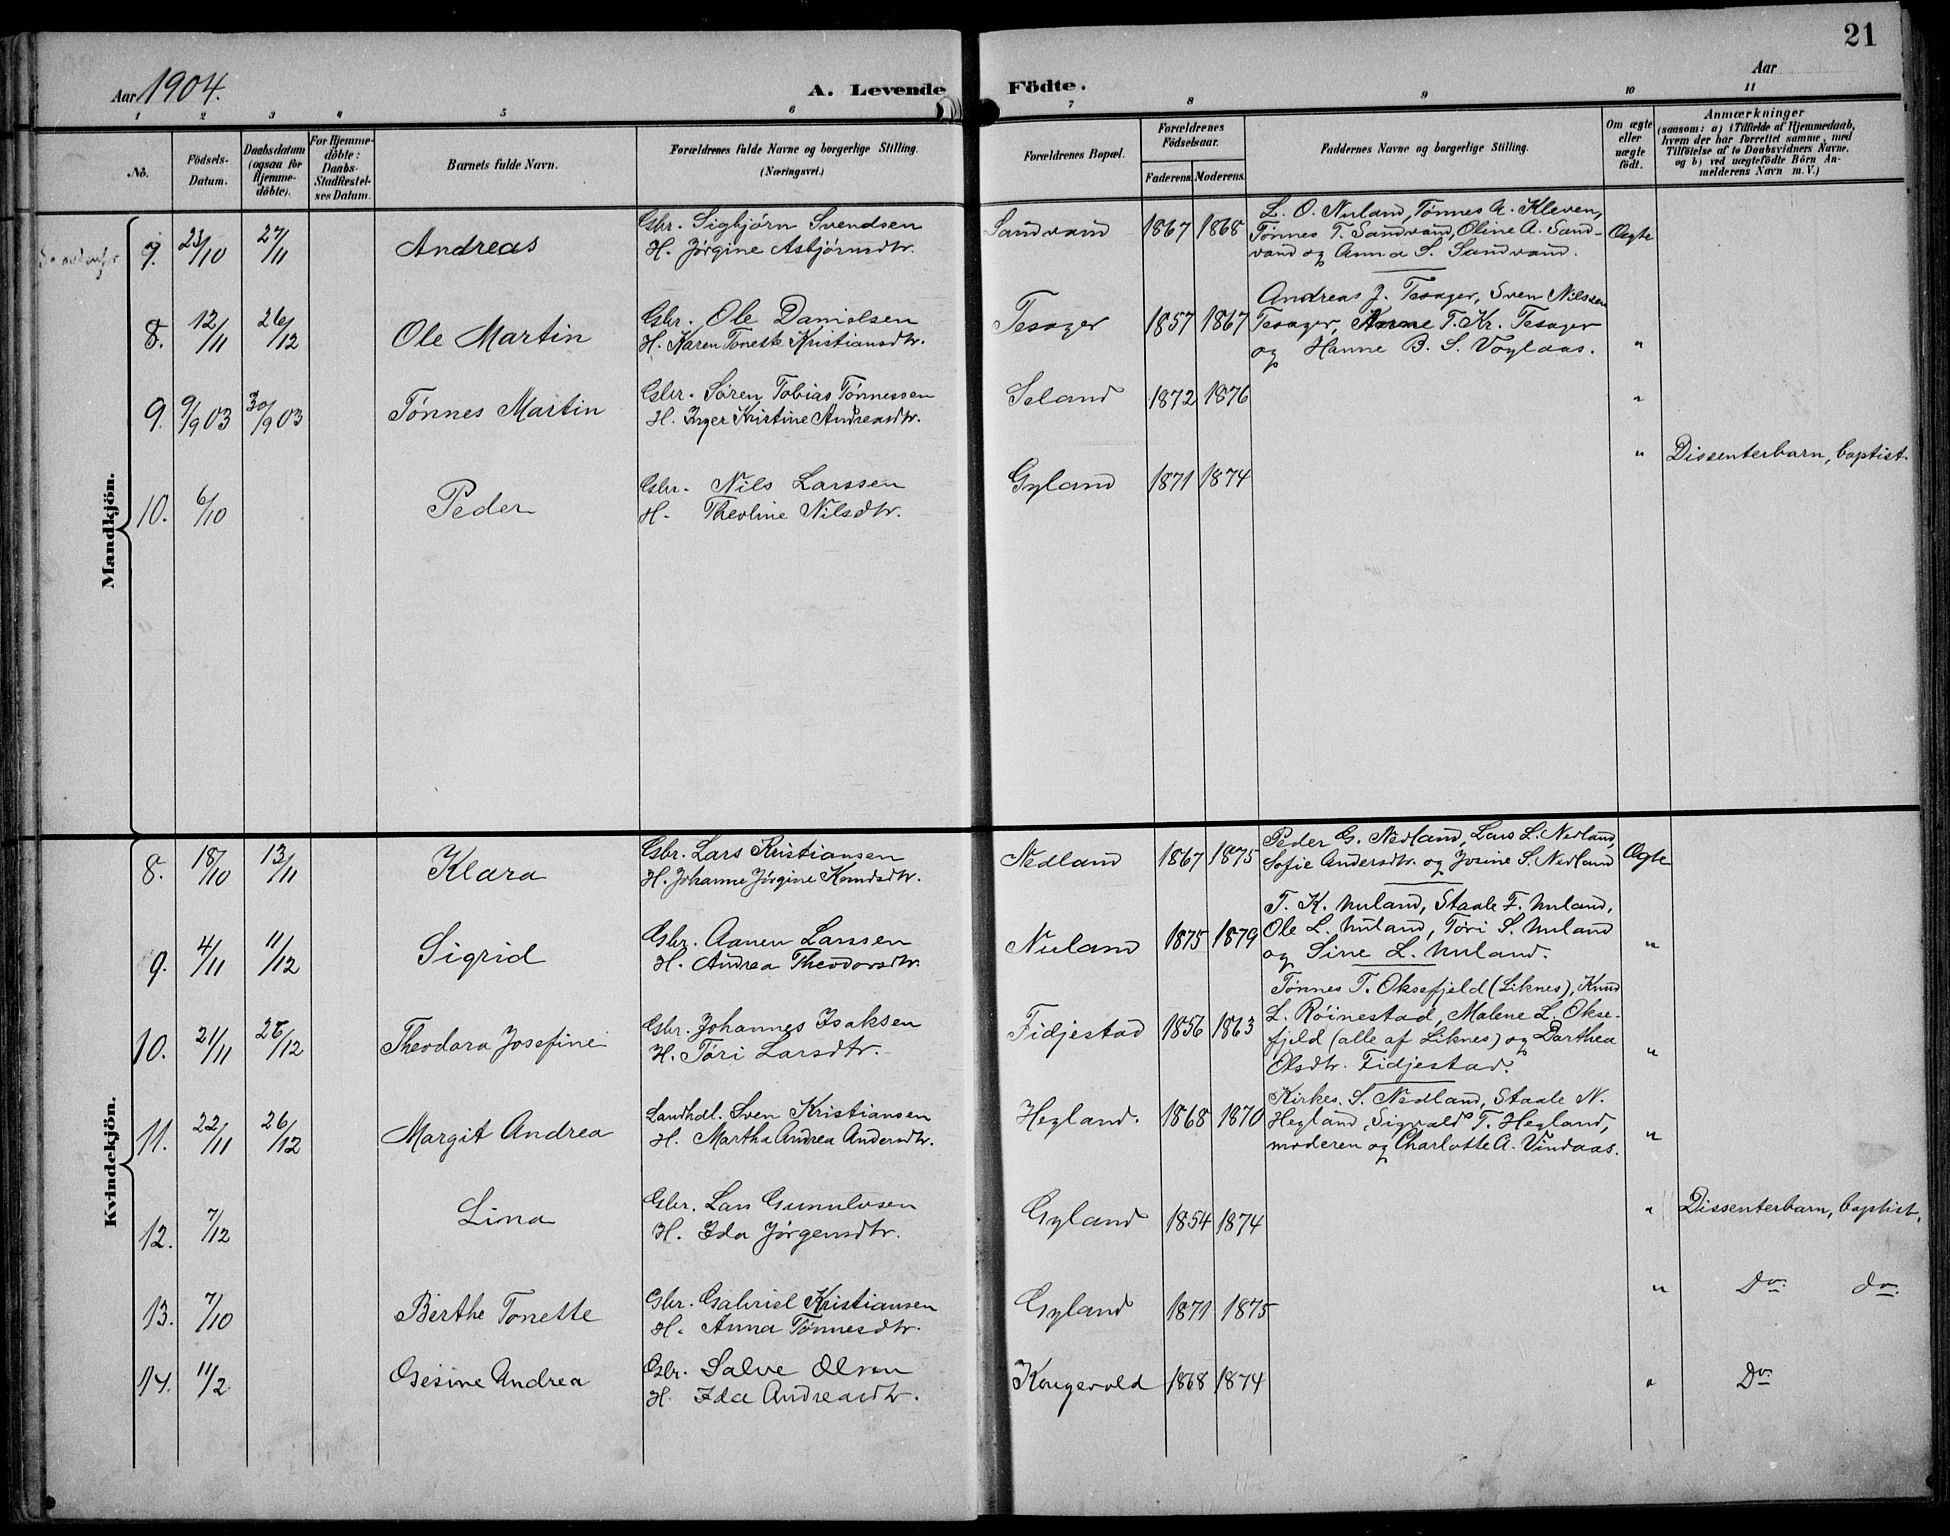 21
Aar 1904. A. Levende Födte. Aar
1 2 3 4 5 6 7 8 9 10 11
No.
Födsels-Datum.
Daabsdatum (ogsaa for Hjemmedöbte).
For Hjemmedöbte: Daabs-Stadfæstelses Datum.
Barnets fulde Navn.
Forældrenes fulde Navne og borgerlige Stilling. (Næringsvei.)
Forældrenes Bopæl.
Forældrenes Födselsaar.
Faderens. Moderens.
Faddernes Navne og borgerlige Stilling.
Om ægte eller uægte födt.
Anmærkninger
(saasom: a) i Tilfælde af Hjemmedaab,
hvem der har forrettet samme, med
Tilföielse af to Daabsvidners Navne,
og b) ved uægtefödte Börn An-
melderens Navn m. V.)
Mandkjön.
7. 23/10 27/11 Andreas Gbr. Sigbjörn Svendsen
H. Jørgine Asbjörnsdtr.
Sandvand 1867 1868 L. O. Nuland, Tønnes A. Kleven,
Tønnes T. Sandvand, Oline A. Sand-
vand og Anna S. Sandvand. Ægte
8. 12/11 26/12 Ole Martin Gbr. Ole Danielsen
H. Karen Tonette Kristiansdtr.
Tesager 1857 1867 Andreas J. Tesager, Sven Nilssen
Tesager, T. Kr. Tesager
og Hanne B. S. Voglaas. "
9. 9/9 03 30/9 03 Tønnes Martin Gbr. Søren Tobias Tønnessen
H. Inger Kristine Andreasdtr.
Seland 1872 1876 "
10. 6/10 Peder Gbr. Nils Larssen
H. Theoline Nilsdtr.
Gyland 1871 1874 " Dissenterbarn, baptist.
Kvindekjön.
8. 18/10 13/11 Klara Gbr. Lars Kristiansen
H. Johanne Jørgine Knudsdtr.
Nedland 1867 1875 Peder G. Nedland, Lars L. Nedland,
Sofie Andersdtr. og Josine S. Nedland Ægte
9. 4/11 11/12 Sigrid Gbr. Aanen Larssen
H. Andrea Theodorsdtr.
Nuland 1875 1879 T. K. Nuland, Staale F. Nuland,
Ole L. Nuland, Tøri S. Nuland
og Sine L. Nuland. "
10. 21/11 26/12 Theodora Josefine Gbr. Johannes Isaksen
H. Tøri Larsdtr.
Fidjestad 1856 1863 Tønnes T. Oksefjeld (Liknes), Knud
L. Røinestad, Malene L. Okse-
fjeld (alle af Liknes) og Darthea
Olsdtr. Fidjestad. "
11. 22/11 26/12 Margit Andrea Landhdl. Sven Kristiansen
H. Martha Andrea Andersdtr.
Hegland. 1868 1870 Kirkes. S. Nedland, Staale N.
Hegland, Sigvald T. Hegland,
moderen og Charlotte A. Vindaas. "
12. 7/12 Lina Gbr. Lars Gunulvsen
H. Ida Jørgensdtr.
Gyland 1854 1874 " Dissenterbarn, baptist,
13. 7/10 Berthe Tonette Gbr. Gabriel Kristiansen
H. Anna Tønnesdtr.
Gyland 1871 1875 " Do. do.
14. 11/2 Gesine Andrea Gbr. Salve Olsen
H. Ida Andreasdtr.
Kongevold 1868 1874 " Do